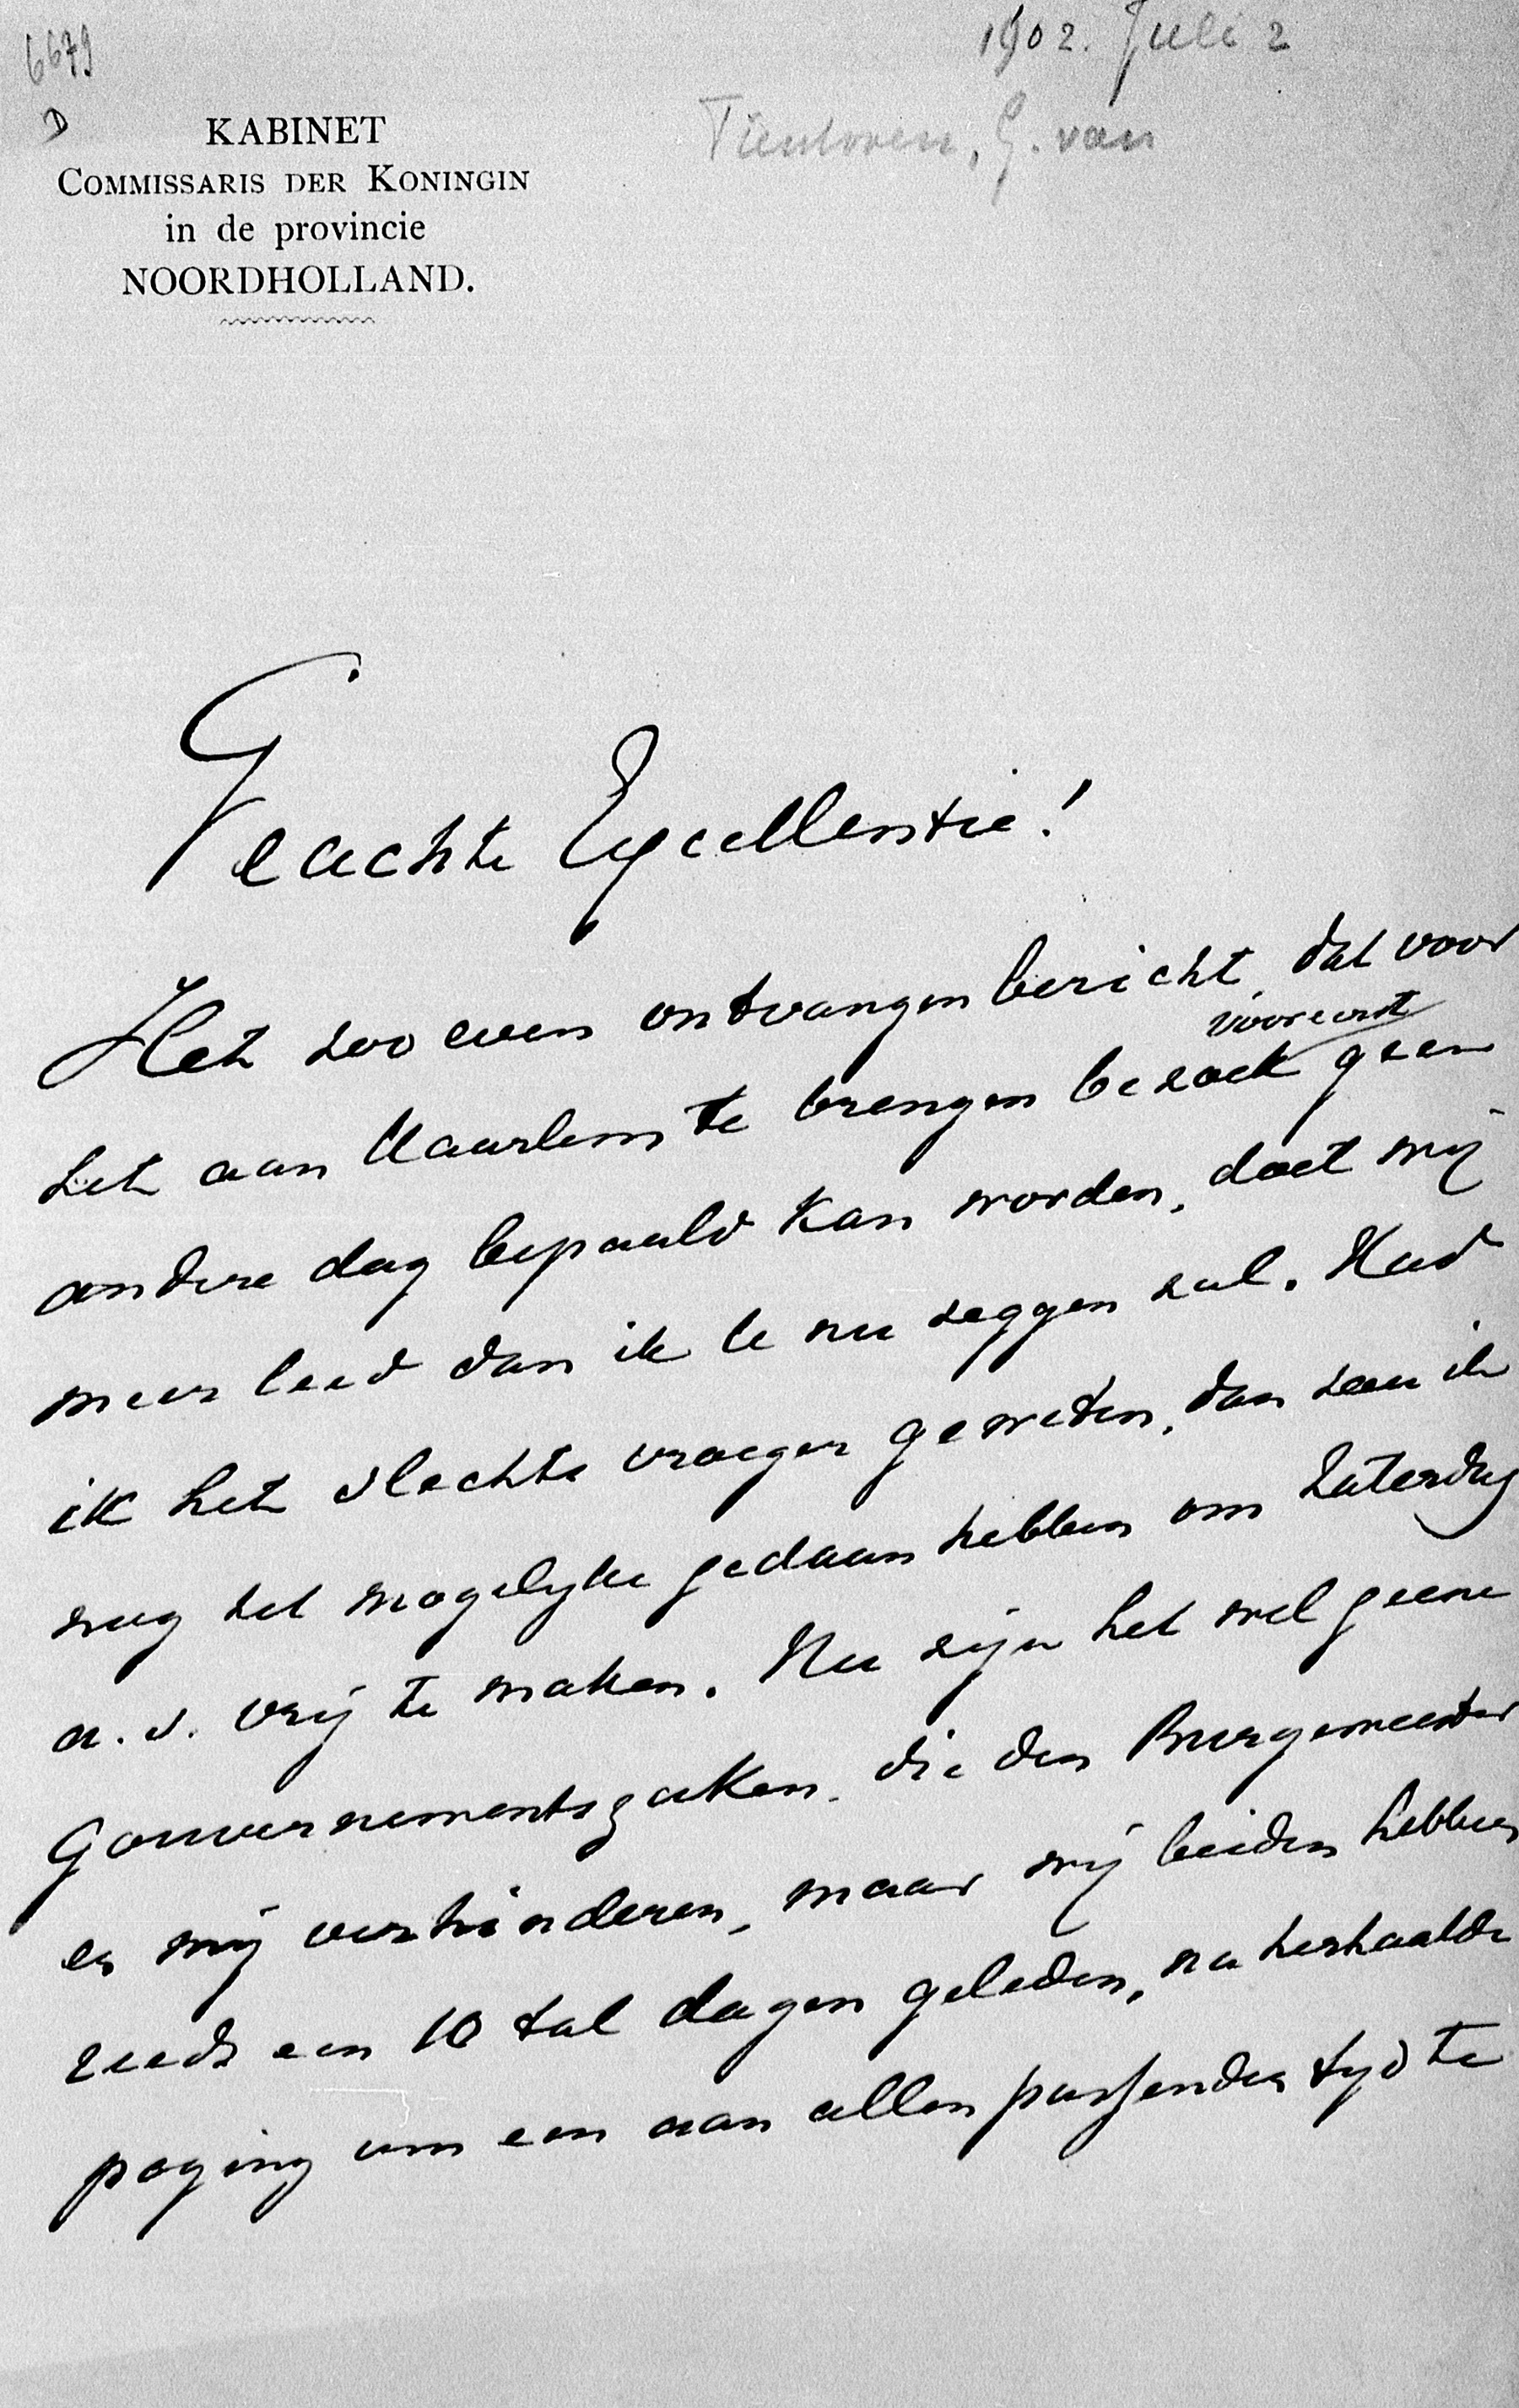 6679
1902. Juli 2
D
Tienhoven, G. van
KABINET
COMMISSARIS DER KONINGIN
in de provincie
NOORDHOLLAND.
Geachte Excellentie!
Het zoo even ontvangen bericht, dat voor
vooreerst
het aan Haarlem te brengen bezoek geen
andere dag bepaald kan worden, doet mij
meer leed dan ik U nu zeggen zal. Had
ik het slechts vroeger geweten, dan zou ik
nog het mogelyke gedaan hebben om Zaterdag
a.s. vrij te maken. Nu zijn het wel geene
Gouvernementszaken, die den Burgemeester
en mij verhinderen, maar wij beiden hebben
reeds een 10 tal dagen geleden, na herhaalde
poging om een aan allen passenden tyd te